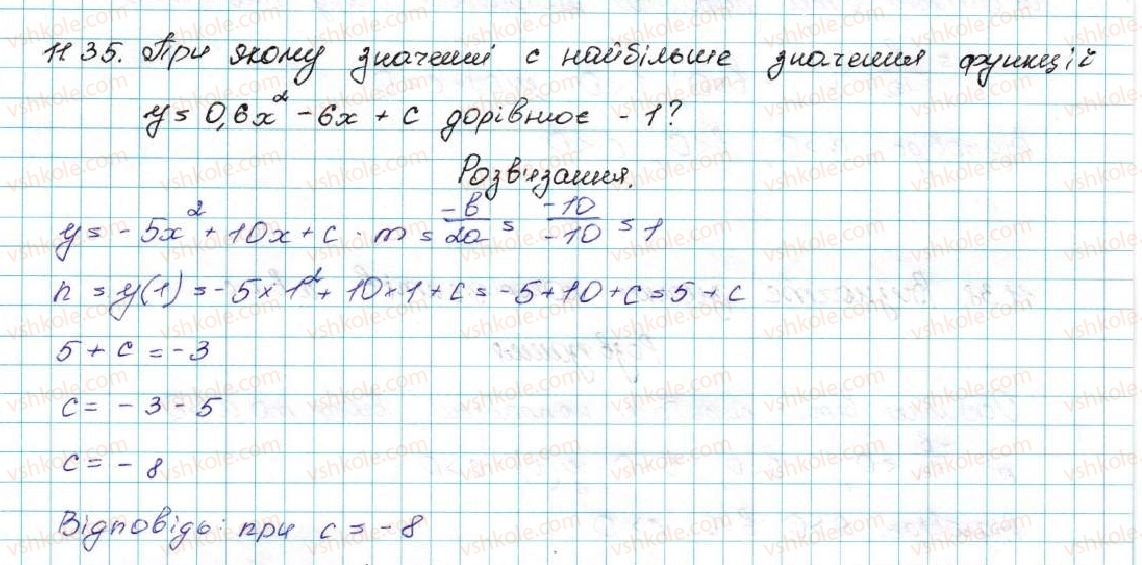 1135. При якому значенні с найбільше значення функцій
y = 0,6x² - 6x + c дорівнює - 1?
Розв'язання.
y = - 5x² + 10x + c · m = -b/2a = -10/-10 = 1
n = y(1) = - 5 × 1² + 10 × 1 + c = - 5 + 10 + c = 5 + c
5 + c = - 3
c = - 3 - 5
c = - 8
Відповідь: при c = - 8